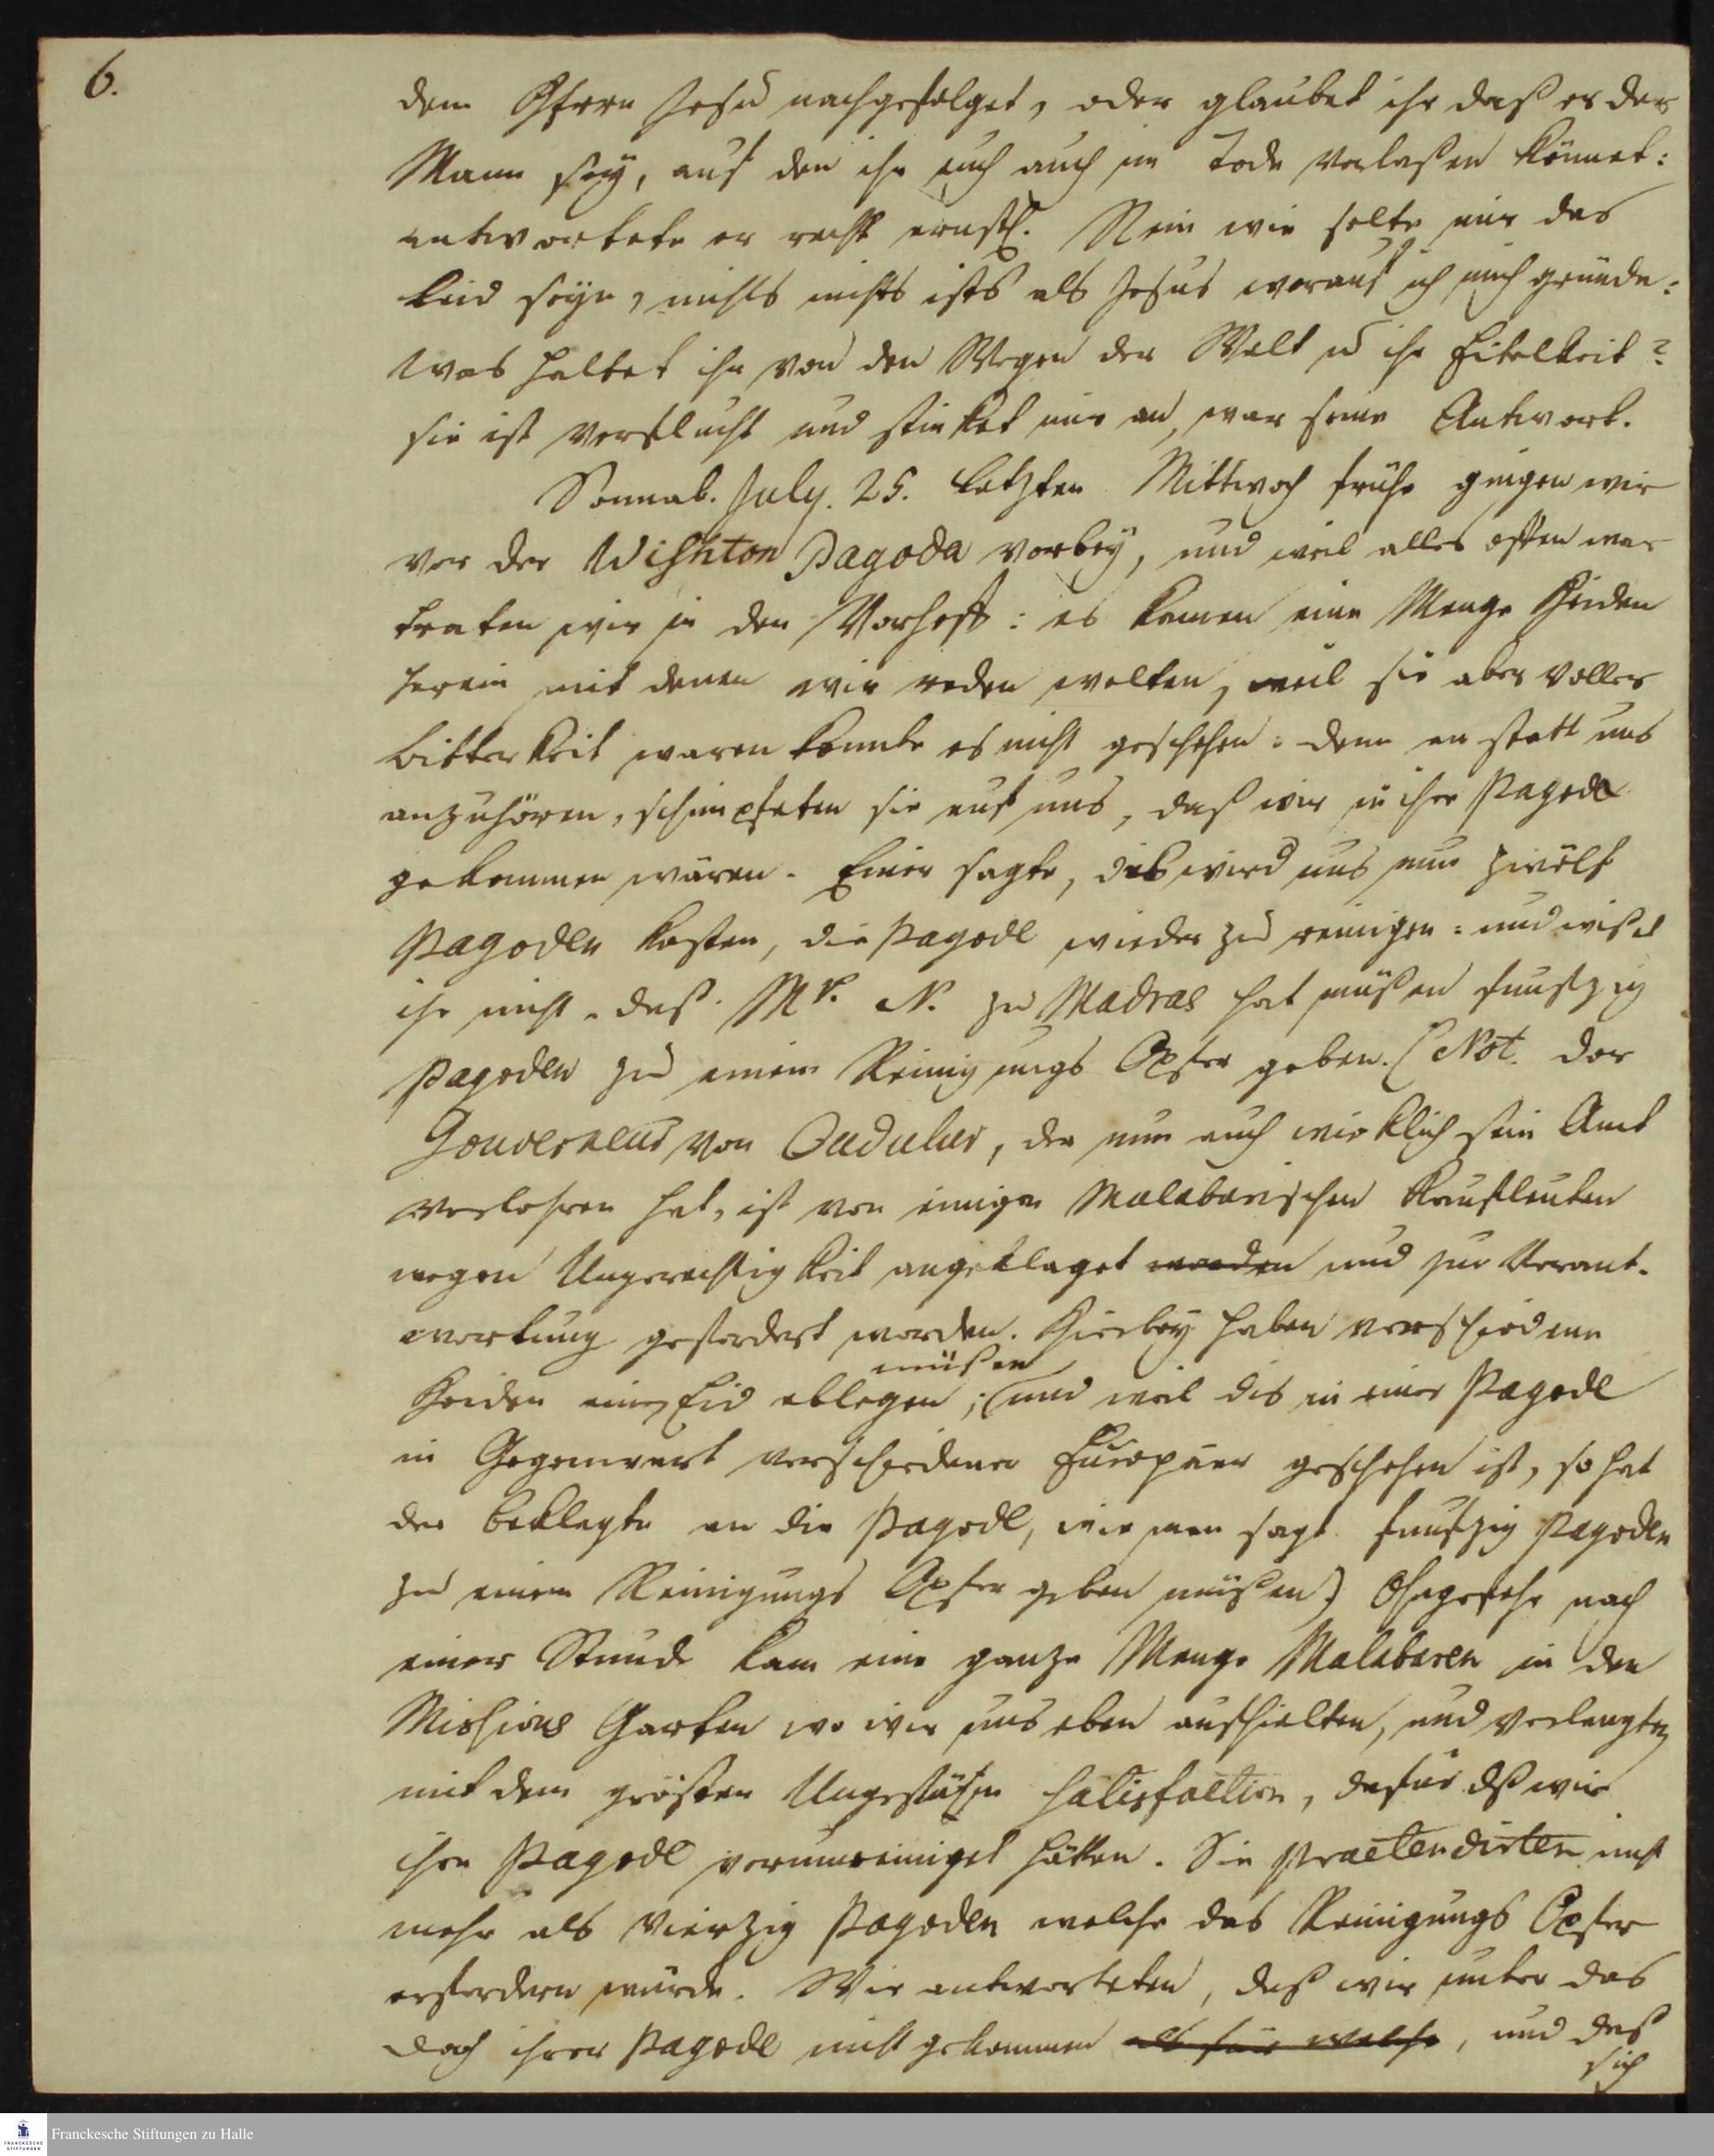 6.
dem Herrn Jesu nachgefolget, oder glaubet ihr daß er der
Mann sey, auf den ihr euch auch im Tode verlaßen könnet:
antwortete er recht ernstl. Nein wie solte mir das
leid seyn, nichts nichts ists als Jesus worauf ich mich gründe:
was haltet ihr von den Wegen der Welt u ihr Eitelkeit?
sie ist verflucht und stinket mir an, war seine Antwort.
Sonnab. July. 25. Letzten Mittwoch frühe gingen wir
vor der Wishton Pagoda vorbey, und weil alles offen war
traten wir in den Vorhoff: es kamen eine Menge Heiden
herein mit denen wir reden wolten, weil sie aber voller
bitterkeit waren konnte es nicht geschehen: denn an statt uns
anzuhören, schimpfeten sie auf uns, daß wir in ihre Pagode
gekommen wären. Einer sagte, dis wird uns nun zwölf
Pagoden kosten, die Pagode wieder zu reinigen: und wißet
ihr nicht, daß Mr. N. zu Madras hat müßen funfzig
Pagoden zu einem Reinigungs Opfer geben. (Not. der
Gouverneur von Cudulur, der nun auch wircklich sein Amt
verlohren hat, ist von einigen Malabarischen Kaufleuten
wegen Ungerechtigkeit angeklaget worden und zur Verant-
wortung gefordert worden. Hierbey haben verschiedene
müßen
Heiden einen Eid ablegen; (und weil dis in einer Pagode
in Gegenwart verschiedener Europäer geschehen ist, so hat
der beklagte an die Pagode, wie man sagt funfzig Pagoden
zu einem Reinigungs Opfer geben müßen) Ohngefehr nach
einer Stunde kam eine ganze Menge Malabaren in den
Missions Garten wo wir uns eben aufhielten, und verlangten
mit dem grösten Ungestühm satisfaction, dafür dß wir
ihre Pagode verunreiniget hätten. Sie praetendirten nicht
mehr als vierzig Pagoden welche das Reinigungs Opfer
erfordern würde. Wir antworteten, daß wir unter das
Dach ihrer Pagode nicht gekommen als für welche, und daß
sich
Franckesche Stiftungen zu Halle